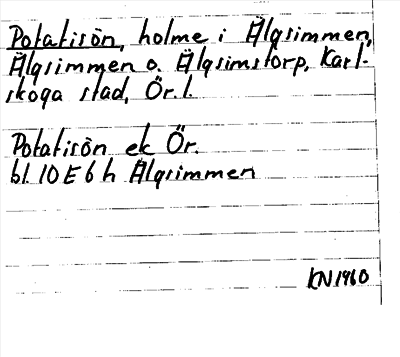 Potatisön, holme i Älgsimmen,
Älgsimmen o. Älgsimstorp, Karl-
skoga stad, Ör. l.
Potatisön ek Ör.
bl. 10 E 6 h Älgsimmen
KN 1960